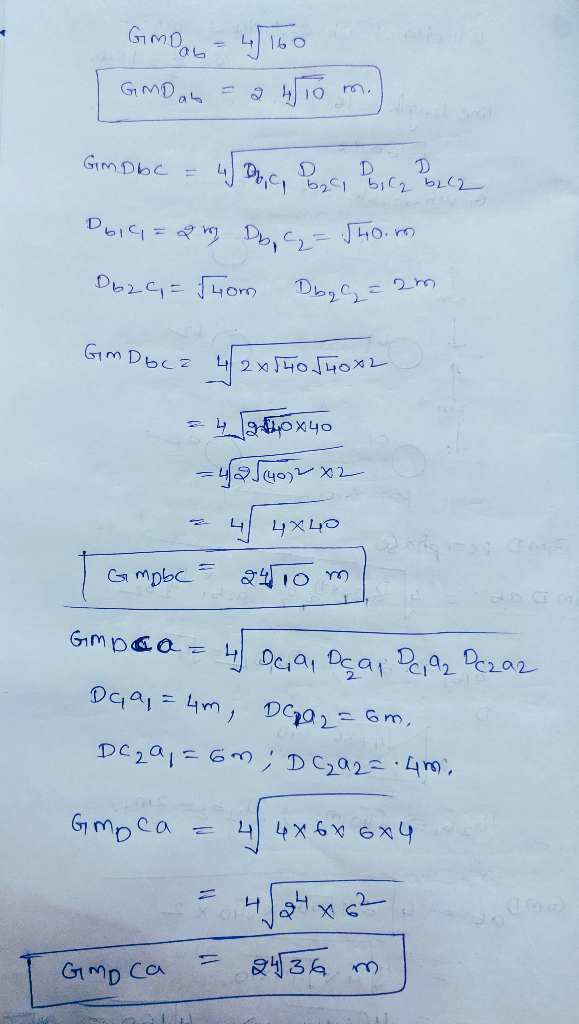 GMD_ab = ∜160
GMD_ab = 2 ∜10 m.
GMDbc = ∜D_b1c1 D_b2c1 D_b1c2 D_b2c2
D_b1c1 = 2m, D_b1c2 = √40.m
D_b2c1 = √40m D_b2c2 = 2m
GMDbc = ∜2x√40 √40x2
= ∜40x40
= ∜2√(40)² x2
= ∜4x40
GMDbc = 2∜10 m
GMDca = ∜D_c1a1 D_c2a1 D_c1a2 D_c2a2
D_c1a1 = 4m, D_c1a2 = 6m.
D_c2a1 = 6m; D_c2a2 = .4m.
GMD ca = ∜4x6x6x4
= ∜2⁴ x 6²
GMD ca = 2∜36 m